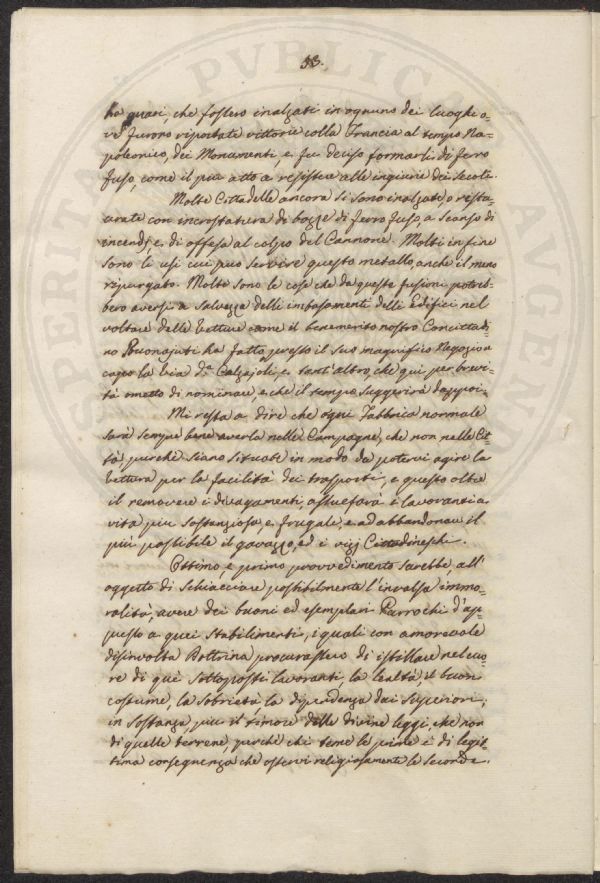 53.
ha guari, che fossero inalzati in ognuno dei luoghi o-
ve furono riportate vittorie colla Francia al tempo Na-
poleonico, dei Monumenti, e fu deciso formarli di ferro
fuso, come il più atto a resistere alle ingiurie dei secoli.
Molte Cittadelle ancora si sono inalzate, o resta-
urate con incrostatura di bozze di ferro fuso, a scanso di
incendj, e di offesa al colpo del Cannone. Molti in fine
sono li usi cui può servire questo metallo, anche il meno
ripurgato. Molte sono le cose che da questa fusione potreb-
bero aversi a salvezza delli imbasamenti delli Edifici nel
voltare delle Vetture come il benemerito nostro Concittadi-
no Buonajuti ha fatto presso il suo magnifico Negozio in
capo la Via de Calzajoli, e tant'altro che qui per brevi-
tà ometto di nominare, e che il tempo suggerirà dappoi.
Mi resta a dire che ogni Fabbrica normale
sarà sempre bene averla nelle Campagne, che non nelle Cit-
tà, purché siano situate in modo da potervi agire la
Vettura per la facilità dei trasporti, e questo oltre
il removere i divagamenti, assuefarà i lavoranti a
vita più sostanziosa, e frugale, e ad abbandonare il
più possibile il gavazzo, ed i vizj Cittadineschi.
Ottimo, e primo provvedimento sarebbe, all'
oggetto di schiacciare possibilmente l'invalsa immo-
ralità, avere dei buoni ed esemplari Parrochi d'ap-
presso a quei Stabilimenti, i quali con amorevole
disinvolta Dottrina procurassero di istillare nel cuo-
re di quei sottoposti lavoranti, la lealtà, il buon
costume, la sobrietà, la dipendenza dai Superiori,
in sostanza, più il timore delle divine leggi, che non
di quelle terrene, perché chi teme le prime è di legit-
tima conseguenza che osservi religiosamente le seconde.
PVBLICA
SPERITAS
AVGENDA